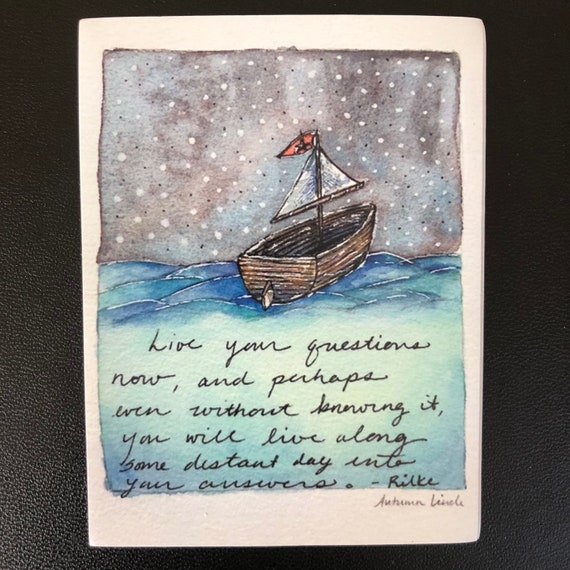 Live your questions
now, and perhaps
even without knowing it,
you will live along
some distant day into
your answers. - Rilke
Autumn